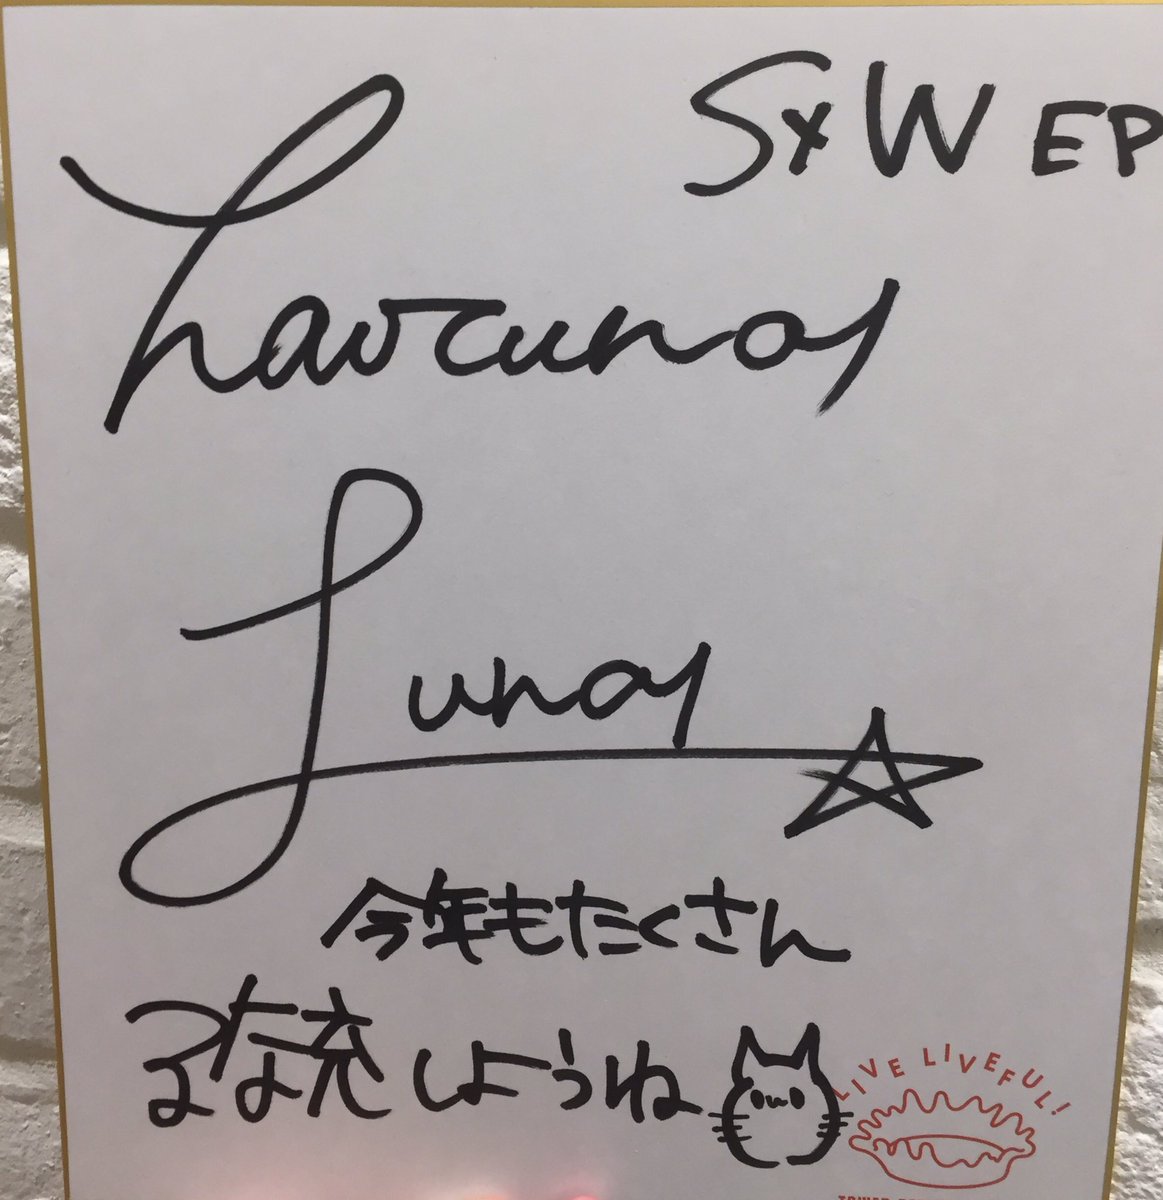 SxW EP
haruna
Luna
今年もたくさん
るな充しようね
LIVE LIVEFUL!